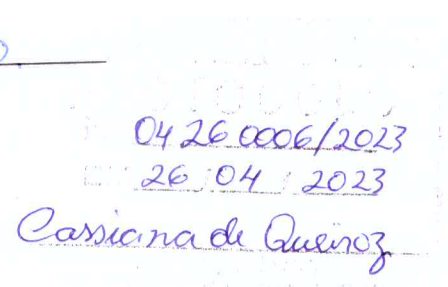 04260006/2023
26 04 2023
Cassiana de Queiroz